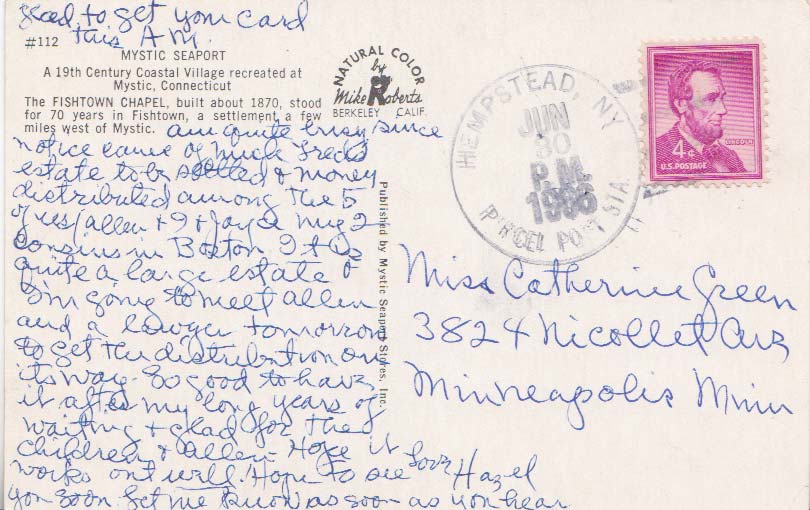 glad to get your card
this A.M.
#112
MYSTIC SEAPORT
A 19th Century Coastal Village recreated at
Mystic, Connecticut
The FISHTOWN CHAPEL, built about 1870, stood
for 70 years in Fishtown, a settlement, a few
miles west of Mystic.
NATURAL COLOR
by
Mike Roberts
BERKELEY CALIF.
am quite busy since
notice came of Uncle Fred's
estate to be settled & money
distributed among the 5
of us/allen + 9 + Joyce my 2
cousins in Boston
quite a large estate &
I'm going to meet allen
and a lawyer tomorrow
to get the distribution on
its way. So good to have
it after my long years of
waiting & glad for the
children & allen. Hope it
works out well. Hope to see
you soon. Let me know as soon as you hear
Love Hazel
Published by Mystic Seaport Stores, Inc.
HEMPSTEAD, NY
JUN
30
P.M.
1966
PARCEL POST STA.
LINCOLN
4¢
U.S. POSTAGE
Miss Catherine Green
3824 Nicollet Ave
Minneapolis Minn